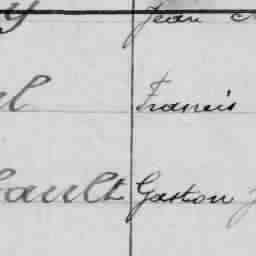 y Jean
l Francis
ault Gaston